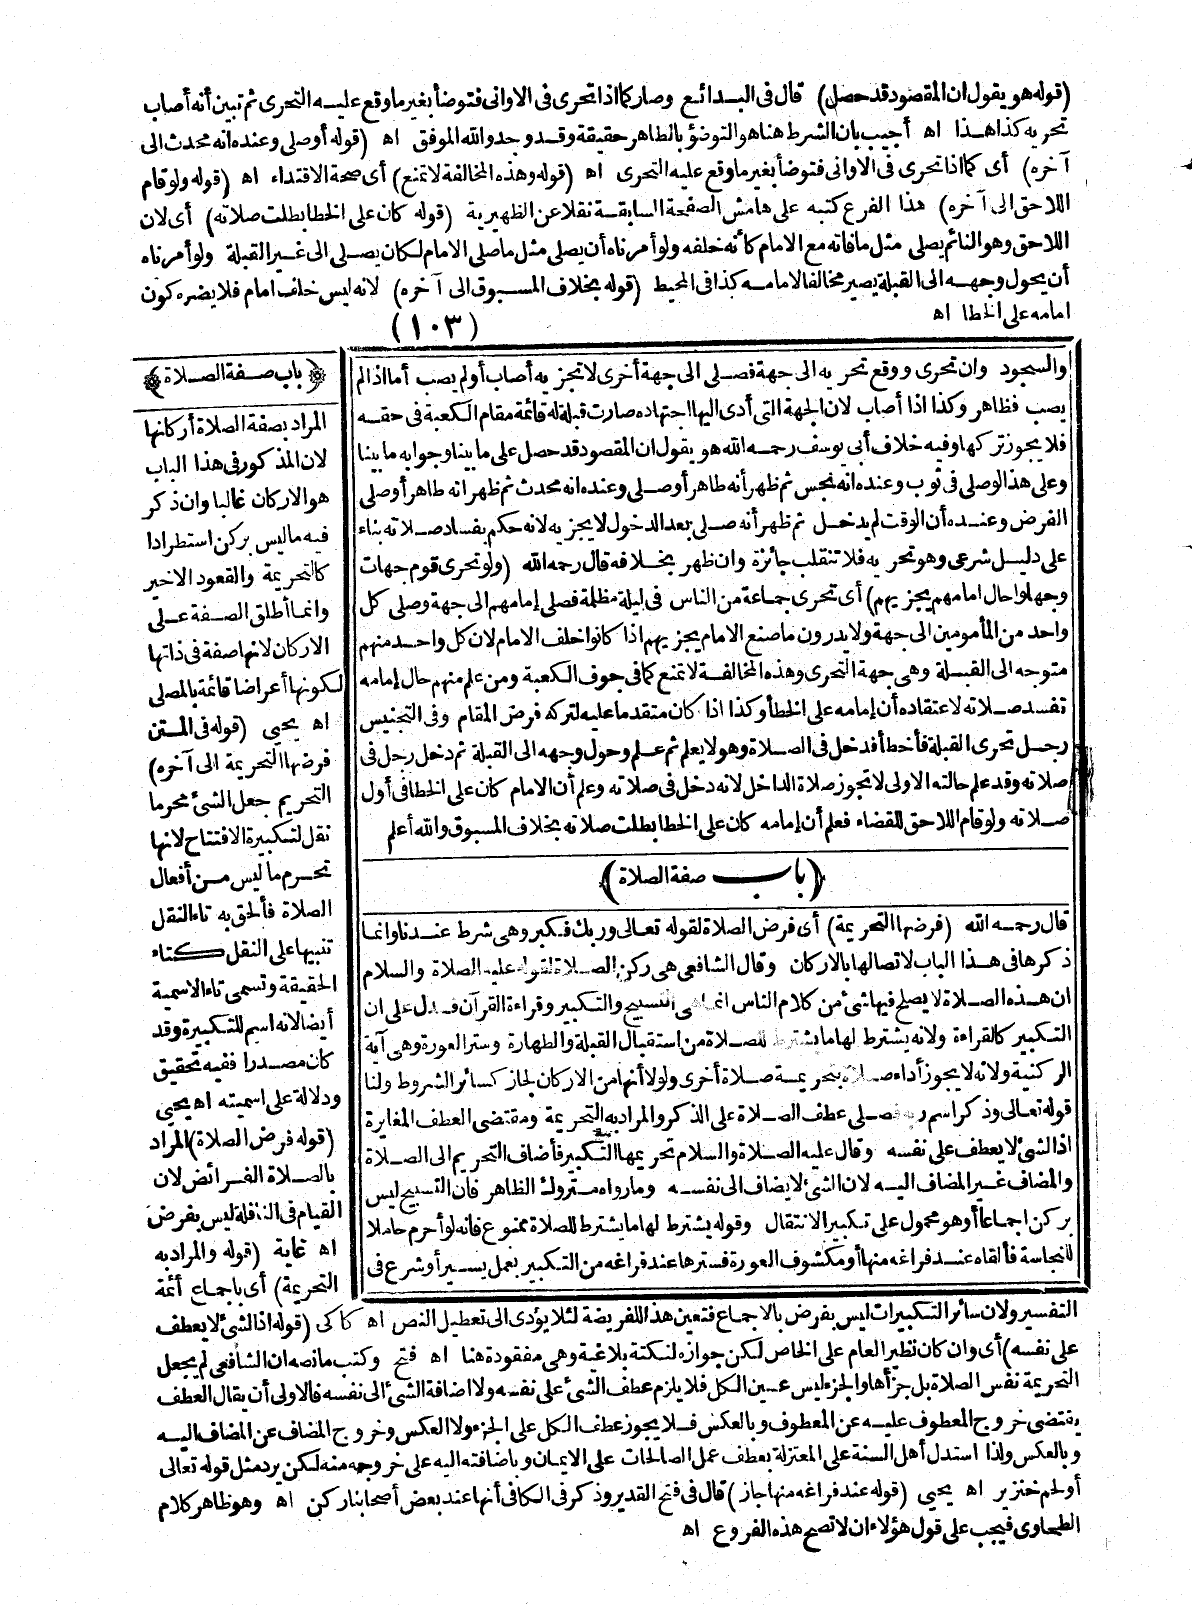 (قوله هو يقول ان المقصود قد حصل) قال فى البدائع وصار كما اذا تحرى فى الاوانى فتوضأ بغير ما وقع عليه التحرى ثم تبين أنه أصاب
تحريه كذا هذا اه أجيب بان الشرط هنا هو التوضؤ بالطاهر حقيقة وقد وجد والله الموفق اه (قوله أو صلى وعنده انه محدث الى
آخره) أى كما اذا تحرى فى الاوانى فتوضأ بغير ما وقع عليه التحرى اه (قوله وهذه المخالفة لا تمنع) أى صحة الاقتداء اه (قوله ولو قام
اللاحق الى آخره) هذا الفرع كتبه على هامش الصفحة السابقة نقلا عن الظهيرية (قوله كان على الخطا بطلت صلاته) أى لان
اللاحق وهو النائم يصلى مثل ما فاته مع الامام كأنه خلفه ولو أمرناه أن يصلى مثل ما صلى الامام لكان يصلى الى غير القبلة ولو أمرناه
أن يحول وجهه الى القبلة يصير مخالفا لامامه كذا فى المحيط (قوله بخلاف المسبوق الى آخره) لانه ليس خلف امام فلا يضره كون
امامه على الخطا اه
(١٠٣)
والسجود وان تحرى ووقع تحريه الى جهة فصلى الى جهة أخرى لا تجزيه أصاب أو لم يصب أما اذا لم
يصب فظاهر وكذا اذا أصاب لان الجهة التى أدى اليها اجتهاده صارت قبلة له قائمة مقام الكعبة فى حقه
فلا يجوز تركها وفيه خلاف أبى يوسف رحمه الله هو يقول ان المقصود قد حصل على ما بينا وجوابه ما بينا
وعلى هذا لو صلى فى ثوب وعنده انه نجس ثم ظهر أنه طاهر أو صلى وعنده انه محدث ثم ظهر انه طاهر أو صلى
الفرض وعنده أن الوقت لم يدخل ثم ظهر أنه صلى بعد الدخول لا يجزيه لانه حكم بفساد صلاته بناء
على دليل شرعى وهو تحريه فلا تنقلب جائزة وان ظهر بخلافه قال رحمه الله (ولو تحرى قوم جهات
وجهلوا حال امامهم يجزيهم) أى تحرى جماعة من الناس فى ليلة مظلمة فصلى إمامهم الى جهة وصلى كل
واحد من المأمومين الى جهة ولا يدرون ما صنع الامام يجزيهم اذا كانوا خلف الامام لان كل واحد منهم
متوجه الى القبلة وهى جهة التحرى وهذه المخالفة لا تمنع كما فى جوف الكعبة ومن علم منهم حال إمامه
تفسد صلاته لاعتقاده أن إمامه على الخطأ وكذا اذا كان متقدما عليه لتركه فرض المقام وفى التجنيس
رجل تحرى القبلة فأخطأ فدخل فى الصلاة وهو لا يعلم ثم علم وحول وجهه الى القبلة ثم دخل رجل فى
صلاته وقد علم حالته الاولى لا تجوز صلاة الداخل لانه دخل فى صلاته وعلم أن الامام كان على الخطا فى أول
صلاته ولو قام اللاحق للقضاء فعلم أن إمامه كان على الخطا بطلت صلاته بخلاف المسبوق والله أعلم
(باب صفة الصلاة)
قال رحمه الله (فرضها التحريمة) أى فرض الصلاة لقوله تعالى وربك فكبر وهى شرط عندنا وانما
ذكرها فى هذا الباب لاتصالها بالاركان وقال الشافعى هى ركن الصلاة لقوله عليه الصلاة والسلام
ان هذه الصلاة لا يصلح فيها شئ من كلام الناس انما هى التسبيح والتكبير وقراءة القرآن فدل على ان
التكبير كالقراءة ولانه يشترط لها ما يشترط للصلاة من استقبال القبلة والطهارة وستر العورة وهى آية
الركنية ولانه لا يجوز أداء صلاة بتحريمة صلاة أخرى ولولا أنها من الاركان لجاز كسائر الشروط ولنا
قوله تعالى وذكر اسم ربه فصلى عطف الصلاة على الذكر والمراد به التحريمة ومقتضى العطف المغايرة
اذ الشئ لا يعطف على نفسه وقال عليه الصلاة والسلام تحريمها التكبير فأضاف التحريم الى الصلاة
والمضاف غير المضاف اليه لان الشئ لا يضاف الى نفسه وما رواه متروك الظاهر فان التسبيح ليس
بركن اجماعا أو هو محمول على تكبير الانتقال وقوله يشترط لها ما يشترط للصلاة ممنوع فانه لو أحرم حاملا
للنجاسة فألقاه عند فراغه منها أو مكشوف العورة فسترها عند فراغه من التكبير بعمل يسير أو شرع فى
﴿باب صفة الصلاة﴾
المراد بصفة الصلاة أركانها
لان المذكور فى هذا الباب
هو الاركان غالبا وان ذكر
فيه ما ليس بركن استطرادا
كالتحريمة والقعود الاخير
وانما أطلق الصفة على
الاركان لانها صفة فى ذاتها
لكونها أعراضا قائمة بالمصلى
اه يحيى (قوله فى المتن
فرضها التحريمة الى آخره)
التحريم جعل الشئ محرما
نقل لتكبيرة الافتتاح لانها
تحرم ما ليس من أفعال
الصلاة فألحق به تاء النقل
تنبيها على النقل كتاء
الحقيقة وتسمى تاء الاسمية
أيضا لانه اسم للتكبيرة وقد
كان مصدرا ففيه تحقيق
ودلالة على اسميته اه يحيى
(قوله فرض الصلاة) المراد
بالصلاة الفرائض لان
القيام فى النافلة ليس بفرض
اه غاية (قوله والمراد به
التحريمة) أى باجماع أئمة
التفسير ولان سائر التكبيرات ليس بفرض بالاجماع فتعين هذا للفريضة لئلا يؤدى الى تعطيل النص اه كاكى (قوله اذ الشئ لا يعطف
على نفسه) أى وان كان نظير العام على الخاص لكن جوازه لنكتة بلاغية وهى مفقودة هنا اه فتح وكتب ما نصه ان الشافعى لم يجعل
التحريمة نفس الصلاة بل جزأها والجزء ليس عين الكل فلا يلزم عطف الشئ على نفسه ولا اضافة الشئ الى نفسه فالاولى أن يقال العطف
يقتضى خروج المعطوف عليه عن المعطوف وبالعكس فلا يجوز عطف الكل على الجزء ولا العكس وخروج المضاف عن المضاف اليه
وبالعكس ولذا استدل أهل السنة على المعتزلة بعطف عمل الصالحات على الايمان وباضافته اليه على خروجه منه لكن يرد مثل قوله تعالى
أو لحم خنزير اه يحيى (قوله عند فراغه منها جاز) قال فى فتح القدير وذكر فى الكافى أنها عند بعض أصحابنا ركن اه وهو ظاهر كلام
الطحاوى فيجب على قول هؤلاء ان لا تصح هذه الفروع اه